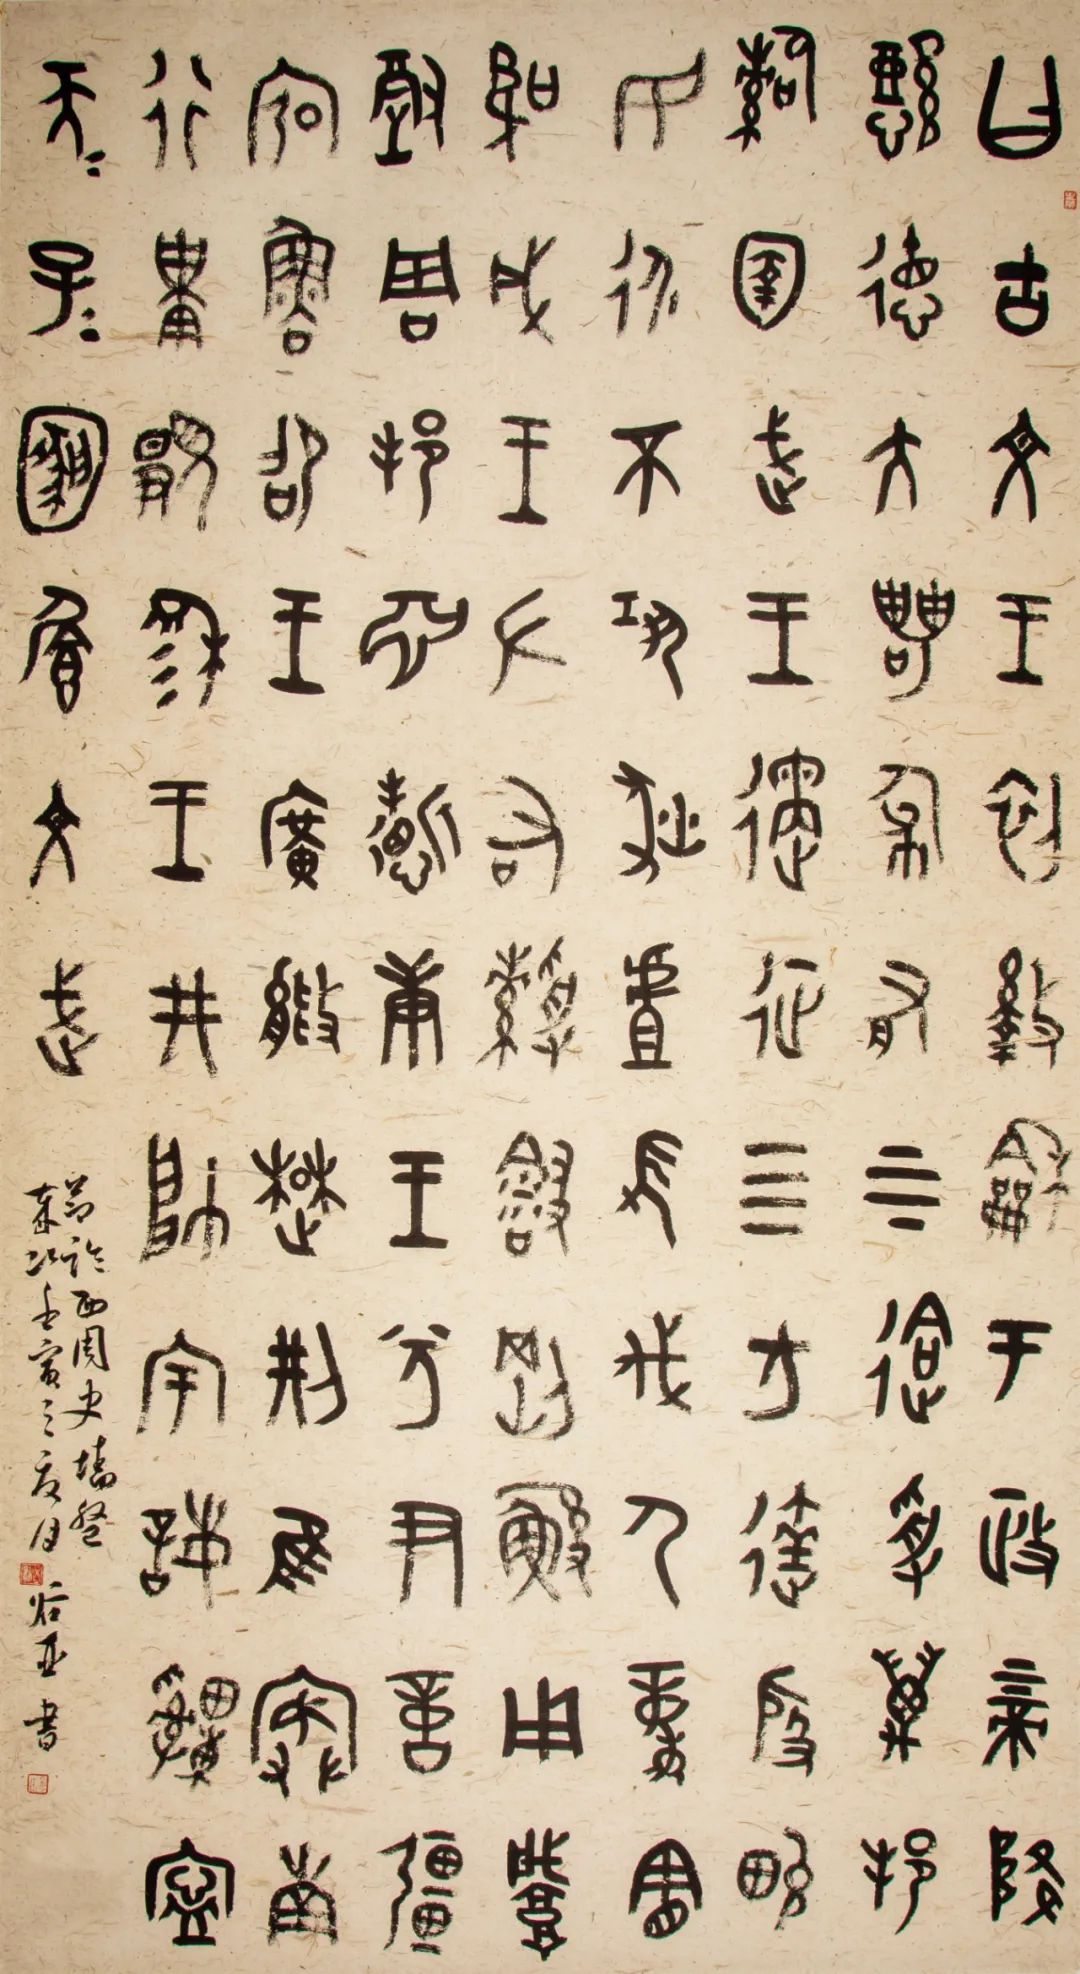 曰古文王初盭龢于政上帝降
懿德大甹匍有上下迨受萬邦
圉武王遹征四方達殷畯
民永不巩狄虘髟伐尸童憲
聖成王左右會剛鯀用肇
徹周邦淵哲康王兮尹啻彊
宖魯卲王廣能楚荊隹寏南
行祗顯穆王井帥宇誨申寧
天=子=文武
節臨西周史墻盤
壬寅之夏月 書